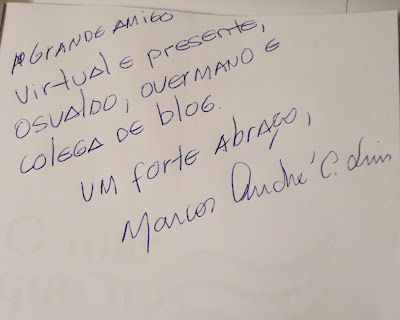 A GRANDE AMIGO
VIRTUAL E PRESENTE,
OSVALDO, OUERMANO E
COLEGA DE BLOG.
UM FORTE ABRAÇO,
Marcos André C.
O
que